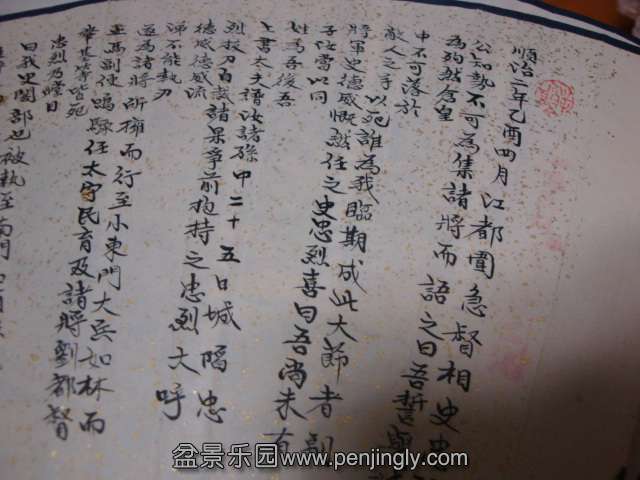 順治二年乙酉四月江都圍急督相史忠
公知勢不可為集諸將而語之曰吾誓與
為殉然倉皇
中不可落於
敵人之手以死誰為我臨期成此大節者副
將軍史德威慨然任之史忠烈喜曰吾尚未有
子汝當以同
姓為吾後吾
上書太夫譜汝諸孫中二十五日城陷忠
烈拔刀自裁諸果爭前抱持之忠烈大呼
德威德威流
涕不能執刃
遂為諸將所擁而行至小東門大兵如林而
至馬副使鳴騄任太守民育及諸將劉都督
肇基等皆死
忠烈乃瞠目
曰我史閣部也被執至南門
盆景乐园www.penjingly.com